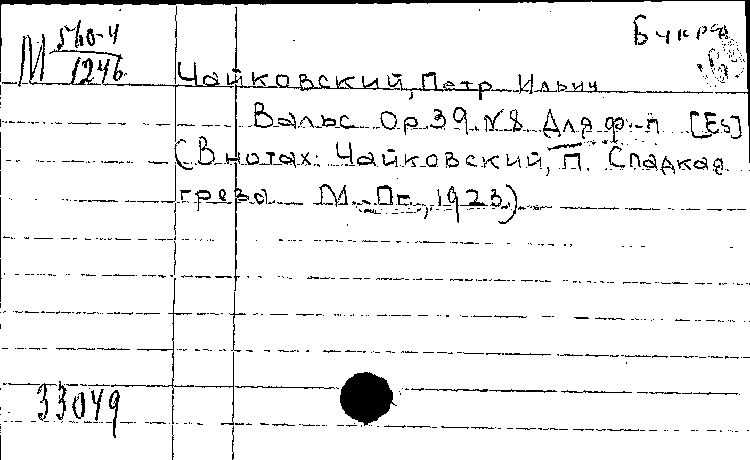 М 560-4
1246
Чайковский, Петр Ильич
Вальс Op 39. N 8 Для ф.-п [Es]
(В нотах: Чайковский, П. Сладкая
греза М.-Пг., 1923)
33049